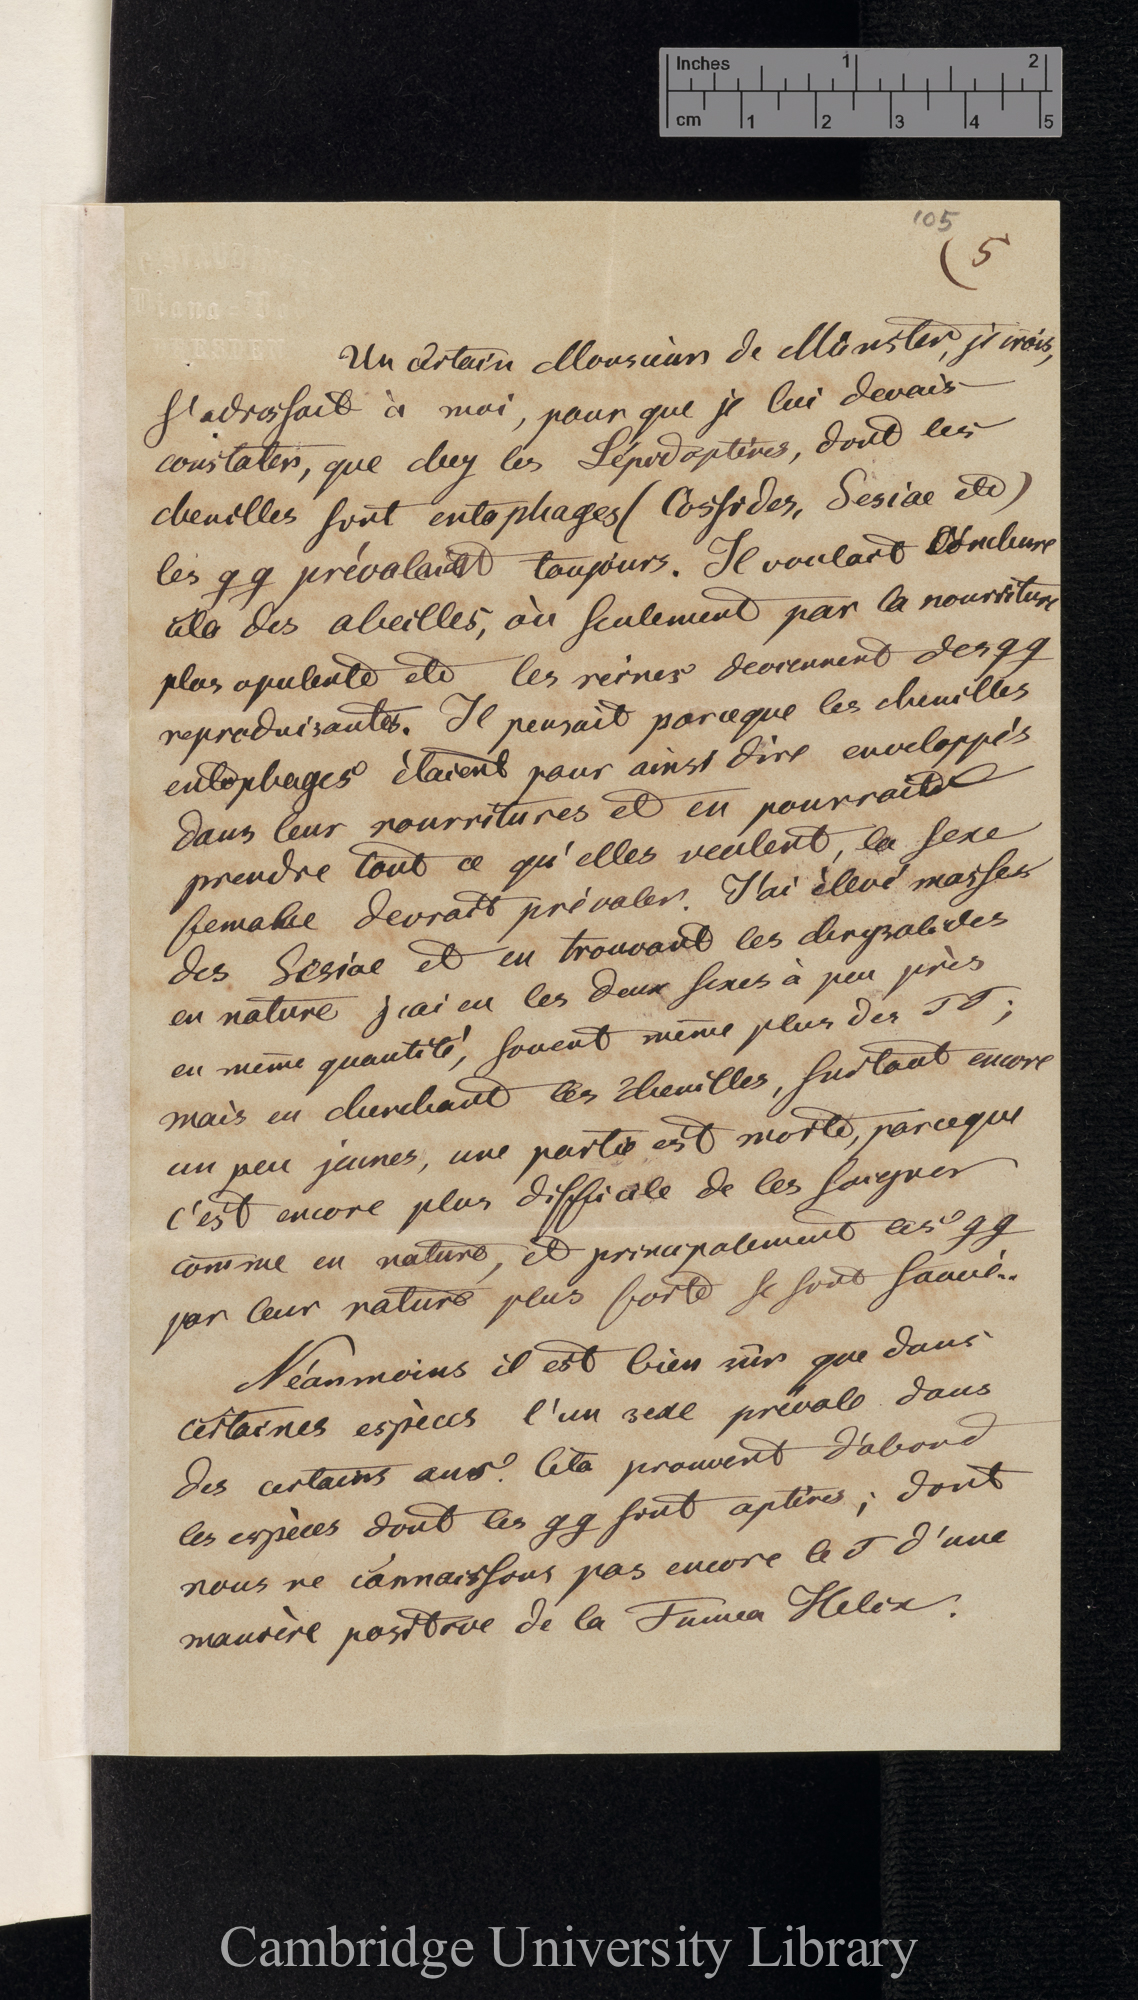 Inches 1 2
cm 1 2 3 4 5
105
(5
Un certain Monsieur de Münster, je crois,
s'adressait à moi, pour que je lui devais
constater, que chez les Lépidoptères, dont les
chenilles sont entophages (Cossides, Sesiae etc)
les ♀♀ prévalaient toujours. Il voulait conclure
cela des abeilles, où seulement par la nourriture
plus opulente etc les reines deviennent des ♀♀
reproduisantes. Il pensait parceque les chenilles
entophages étaient pour ainsi dire enveloppés
dans leur nourritures et en pourrait
prendre tout ce qu'elles veulent, la sexe
femalue devrait prévaler. J'ai élevé masses
des Sesiae et en trouvant les chrysalides
en nature j'ai eu les deux sexes à peu près
en même quantité, souvent même plus des ♂♂;
mais en cherchant les chenilles, surtout encore
un peu jeunes, une partie est morte, parceque
c'est encore plus difficile de les soigner
comme en nature, et principalement ces ♀♀
par leur nature plus forte se sont sauvé..
Néanmoins il est bien sûr que dans
certaines espèces l'un sexe prévale dans
des certains ans. Cela prouvent d'abord
les espèces dont les ♀♀ sont aptères; dont
nous ne connaissons pas encore le ♂ d'une
manière positive de la Fumea Helix.
Cambridge University Library